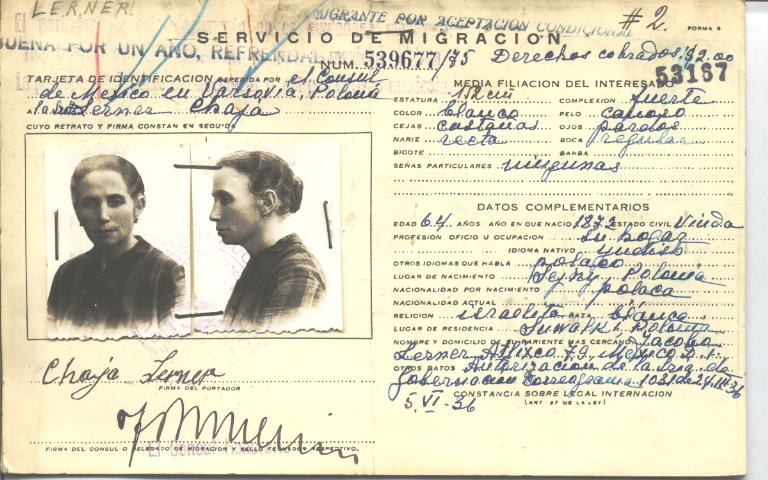 LERNER!
INMIGRANTE POR ACEPTACION CONDICIONAL
#2.
FORMA 5
SERVICIO DE MIGRACION
BUENA POR UN AÑO, REFRENDABLE
NUM. 539677/75 Derechos cobrados: $2.00
53187
TARJETA DE IDENTIFICACION EXPEDIDA POR el Consul
de Mexico en Varsovia, Polonia
A la Sra Lerner Chaja
CUYO RETRATO Y FIRMA CONSTAN EN SEGUIDA
Chaja Lerner
FIRMA DEL PORTADOR
El Consul Honorario
FIRMA DEL CONSUL O DELEGADO DE MIGRACION Y SELLO RESPECTIVO.
MEDIA FILIACION DEL INTERESADO
ESTATURA 152 cm COMPLEXION fuerte
COLOR blanco PELO canoso
CEJAS castañas OJOS pardos
NARIZ recta BOCA regular
BIGOTE BARBA
SEÑAS PARTICULARES ningunas
DATOS COMPLEMENTARIOS
EDAD 64 AÑOS. AÑO EN QUE NACIO 1872 ESTADO CIVIL Viuda
PROFESION OFICIO U OCUPACION su hogar
IDIOMA NATIVO yudish
OTROS IDIOMAS QUE HABLA polaco
LUGAR DE NACIMIENTO Sejny, Polonia
NACIONALIDAD POR NACIMIENTO polaca
NACIONALIDAD ACTUAL
RELIGION israelita RAZA blanca
LUGAR DE RESIDENCIA Suwalki, Polonia
NOMBRE Y DOMICILIO DE SU PARIENTE MAS CERCANO Jacobo
Lerner, Atlixco 79, Mexico D. F.
OTROS DATOS Autorizacion de la Sria. de
Gobernacion Correograma 1031 de 24-III-36
CONSTANCIA SOBRE LEGAL INTERNACION
5. VI - 36 (ART 57 DE LA LEY)